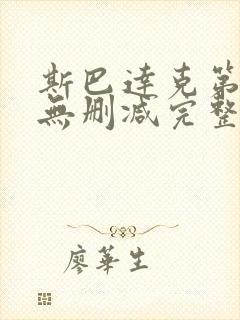 斯巴達克第
無刪減完整
廖華生